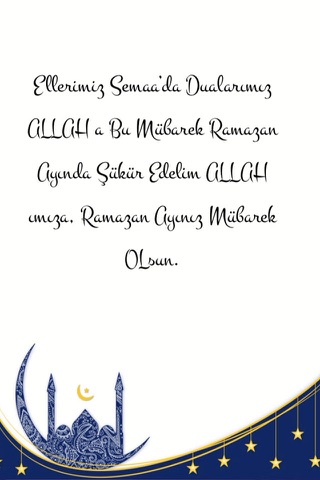 Ellerimiz Semaa'da Dualarımız
ALLAH a Bu Mübarek Ramazan
Ayında Şükür Edelim ALLAH
ımıza. Ramazan Ayınız Mübarek
OLsun.